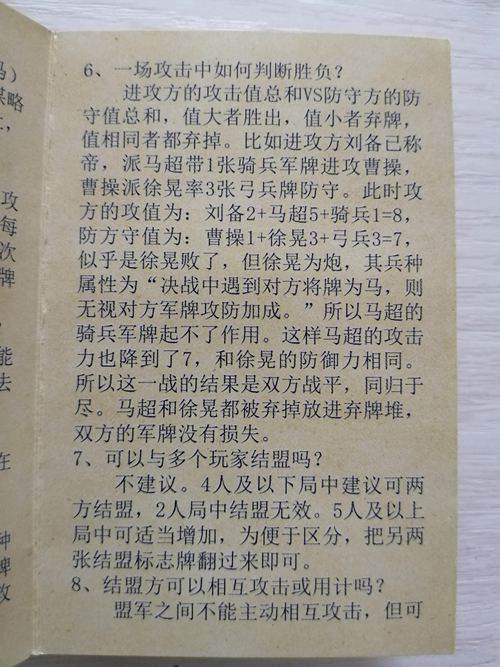 6、一场攻击中如何判断胜负？
进攻方的攻击值总和VS防守方的防
守值总和，值大者胜出，值小者弃牌，
值相同者都弃掉。比如进攻方刘备已称
帝，派马超带1张骑兵军牌进攻曹操，
曹操派徐晃率3张弓兵牌防守。此时攻
方的攻值为：刘备2+马超5+骑兵1=8，
防方守值为：曹操1+徐晃3+弓兵3=7，
似乎是徐晃败了，但徐晃为炮，其兵种
属性为“决战中遇到对方将牌为马，则
无视对方军牌攻防加成。”所以马超的
骑兵军牌起不了作用。这样马超的攻击
力也降到了7，和徐晃的防御力相同。
所以这一战的结果是双方战平，同归于
尽。马超和徐晃都被弃掉放进弃牌堆，
双方的军牌没有损失。
7、可以与多个玩家结盟吗？
不建议。4人及以下局中建议可两
方结盟，2人局中结盟无效。5人及以上
局中可适当增加，为便于区分，把另两
张结盟标志牌翻过来即可。
8、结盟方可以相互攻击或用计吗？
盟军之间不能主动相互攻击，但可
马）
谋略
，
攻
每
次
牌
，
能
去
在
种
牌
攻